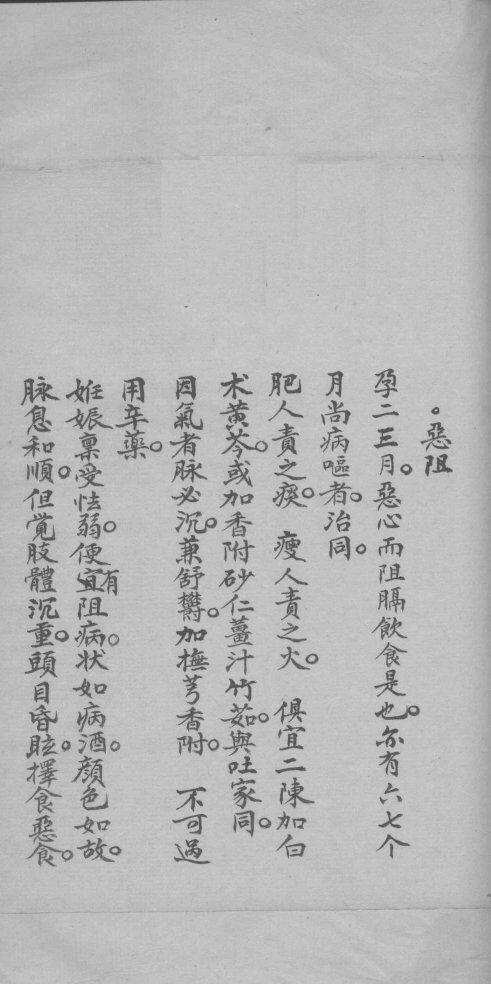 。惡阻
孕二三月。惡心而阻膈飲食是也。亦有六七个
月尚病嘔者。治同。
肥人責之痰。瘦人責之火。俱宜二陳加白
术黃芩。或加香附砂仁薑汁竹茹。與吐家同。
因氣者脉必沉。兼舒鬱。加撫芎香附。不可過
用辛藥。
妊娠稟受怯弱。便有宜阻病。状如病酒。顔色如故。
脉息和順。但覚肢體沉重。頭目昏眩。擇食惡食。